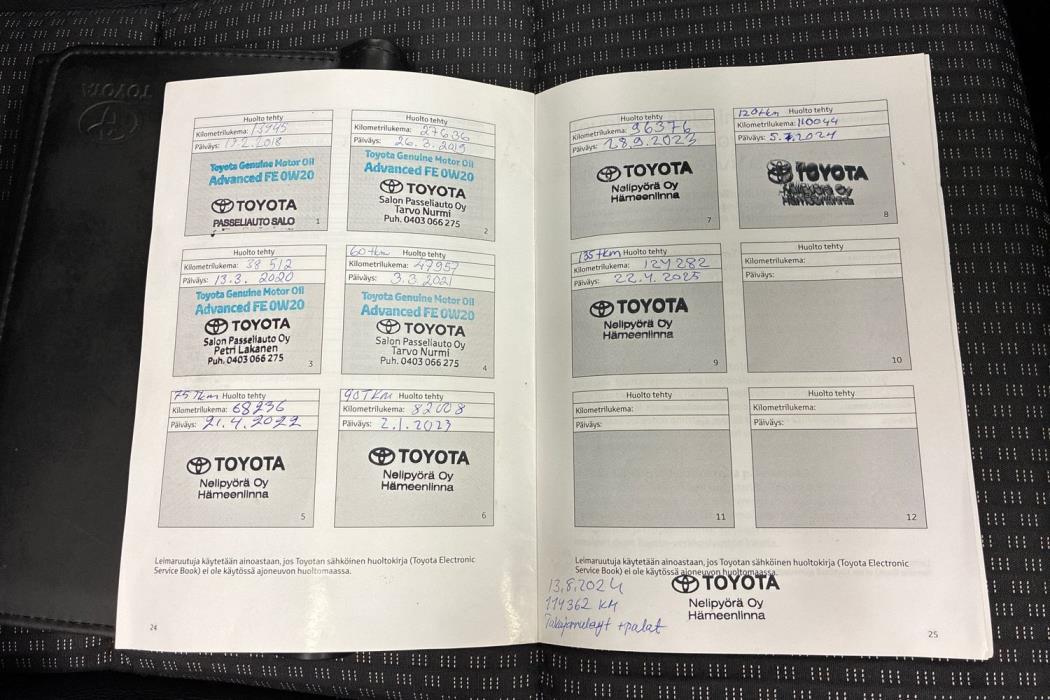 TOYOTA
Huolto tehty
Kilometrilukema: 13945
Päiväys: 19.2.2018
Toyota Genuine Motor Oil
Advanced FE 0W20
TOYOTA
PASSELIAUTO SALO
1
Huolto tehty
Kilometrilukema: 27636
Päiväys: 26.3.2019
Toyota Genuine Motor Oil
Advanced FE 0W20
TOYOTA
Salon Passeliauto Oy
Tarvo Nurmi
Puh. 0403 066 275
2
Huolto tehty
Kilometrilukema: 38 512
Päiväys: 13.3. 2020
Toyota Genuine Motor Oil
Advanced FE 0W20
TOYOTA
Salon Passeliauto Oy
Petri Lakanen
Puh. 0403 066 275
3
60 tkm Huolto tehty
Kilometrilukema: 47957
Päiväys: 3.3.2021
Toyota Genuine Motor Oil
Advanced FE 0W20
TOYOTA
Salon Passeliauto Oy
Tarvo Nurmi
Puh. 0403 066 275
4
75 Tkm Huolto tehty
Kilometrilukema: 68236
Päiväys: 21.4.2022
TOYOTA
Nelipyörä Oy
Hämeenlinna
5
90 TKM Huolto tehty
Kilometrilukema: 82008
Päiväys: 2.1.2023
TOYOTA
Nelipyörä Oy
Hämeenlinna
6
Leimaruutuja käytetään ainoastaan, jos Toyotan sähköinen huoltokirja (Toyota Electronic
Service Book) ei ole käytössä ajoneuvon huoltomaassa.
24
Huolto tehty
Kilometrilukema: 96376
Päiväys: 28.9.2023
TOYOTA
Nelipyörä Oy
Hämeenlinna
7
120tkm Huolto tehty
Kilometrilukema: 110044
Päiväys: 5.7.2024
TOYOTA
Nelipyörä Oy
Hämeenlinna
8
135 tkm Huolto tehty
Kilometrilukema: 124 282
Päiväys: 22.4.2025
TOYOTA
Nelipyörä Oy
Hämeenlinna
9
Huolto tehty
Kilometrilukema:
Päiväys:
10
Huolto tehty
Kilometrilukema:
Päiväys:
11
Huolto tehty
Kilometrilukema:
Päiväys:
12
Leimaruutuja käytetään ainoastaan, jos Toyotan sähköinen huoltokirja (Toyota Electronic
Service Book) ei ole käytössä ajoneuvon huoltomaassa.
13.8.2024
114362 KM
Takajarrulevyt + palat
TOYOTA
Nelipyörä Oy
Hämeenlinna
25